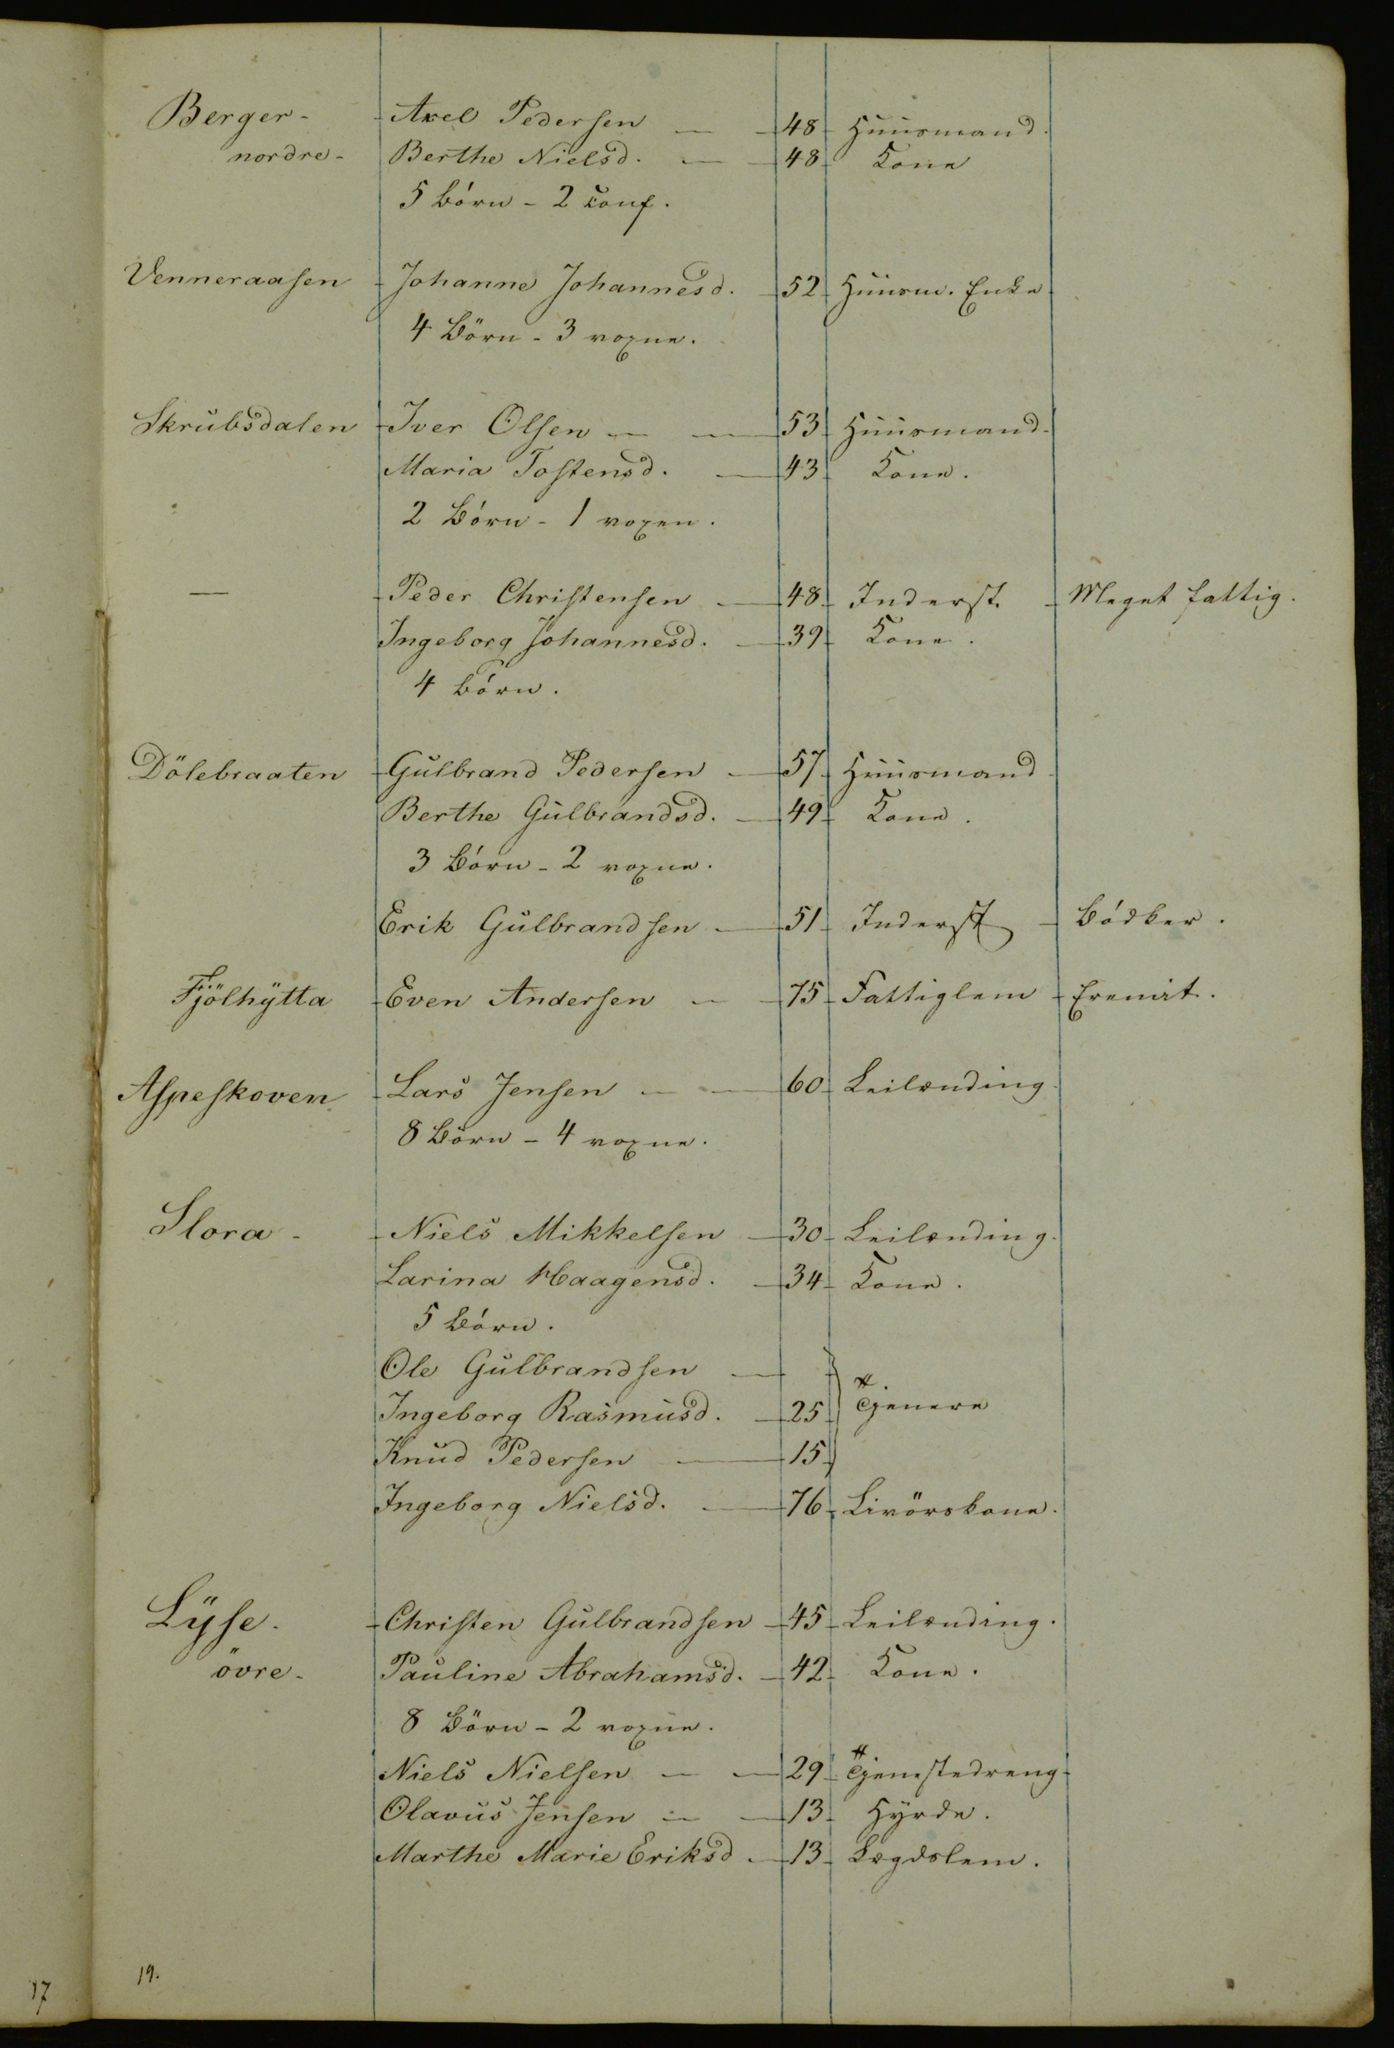 Berger - Axel Pedersen — 48 - Huusmand.
nordre - Berthe Nielsd. — 48 - Kone
5 Börn - 2 conf.
Venneraasen Johanne Johannesd. 52 Huusm. Enke
4 Börn - 3 voxne.
Skrubsdalen Iver Olsen — — 53 Huusmand.
Maria Tostensd. — 43 Kone.
2 Börn - 1 voxen.
— Peder Christensen — 48 - Inderst. - Meget fattig.
Ingeborg Johannesd. — 39 - Kone.
4 Börn.
Dölebraaten Gulbrand Pedersen — 57 - Huusmand
Berthe Gulbrandsd. — 49 - Kone.
3 Börn - 2 voxne.
Erik Gulbrandsen — 51 - Inderst - Bödker.
Fjölhytta Even Andersen — 75 - Fattiglem - Eremit.
Aspeskoven Lars Jensen — — 60 - Leilænding
8 Börn - 4 voxne.
Slora - Niels Mikkelsen — 30 - Leilænding.
Larina Haagensd. — 34 - Kone.
5 Börn.
Ole Gulbrandsen —
Ingeborg Rasmusd. — 25 - Tjenere
Knud Pedersen — 15 -
Ingeborg Nielsd. — 76 - Livörskone.
Lyse. Christen Gulbrandsen - 45 - Leilænding.
övre - Pauline Abrahamsd. - 42 - Kone.
8 Börn - 2 voxne.
Niels Nielsen — — 29 - Tjenestedreng -
Olavus Jensen — — 13 - Hyrde.
Marthe Marie Eriksd — 13 - Lægdslem.
19.
17